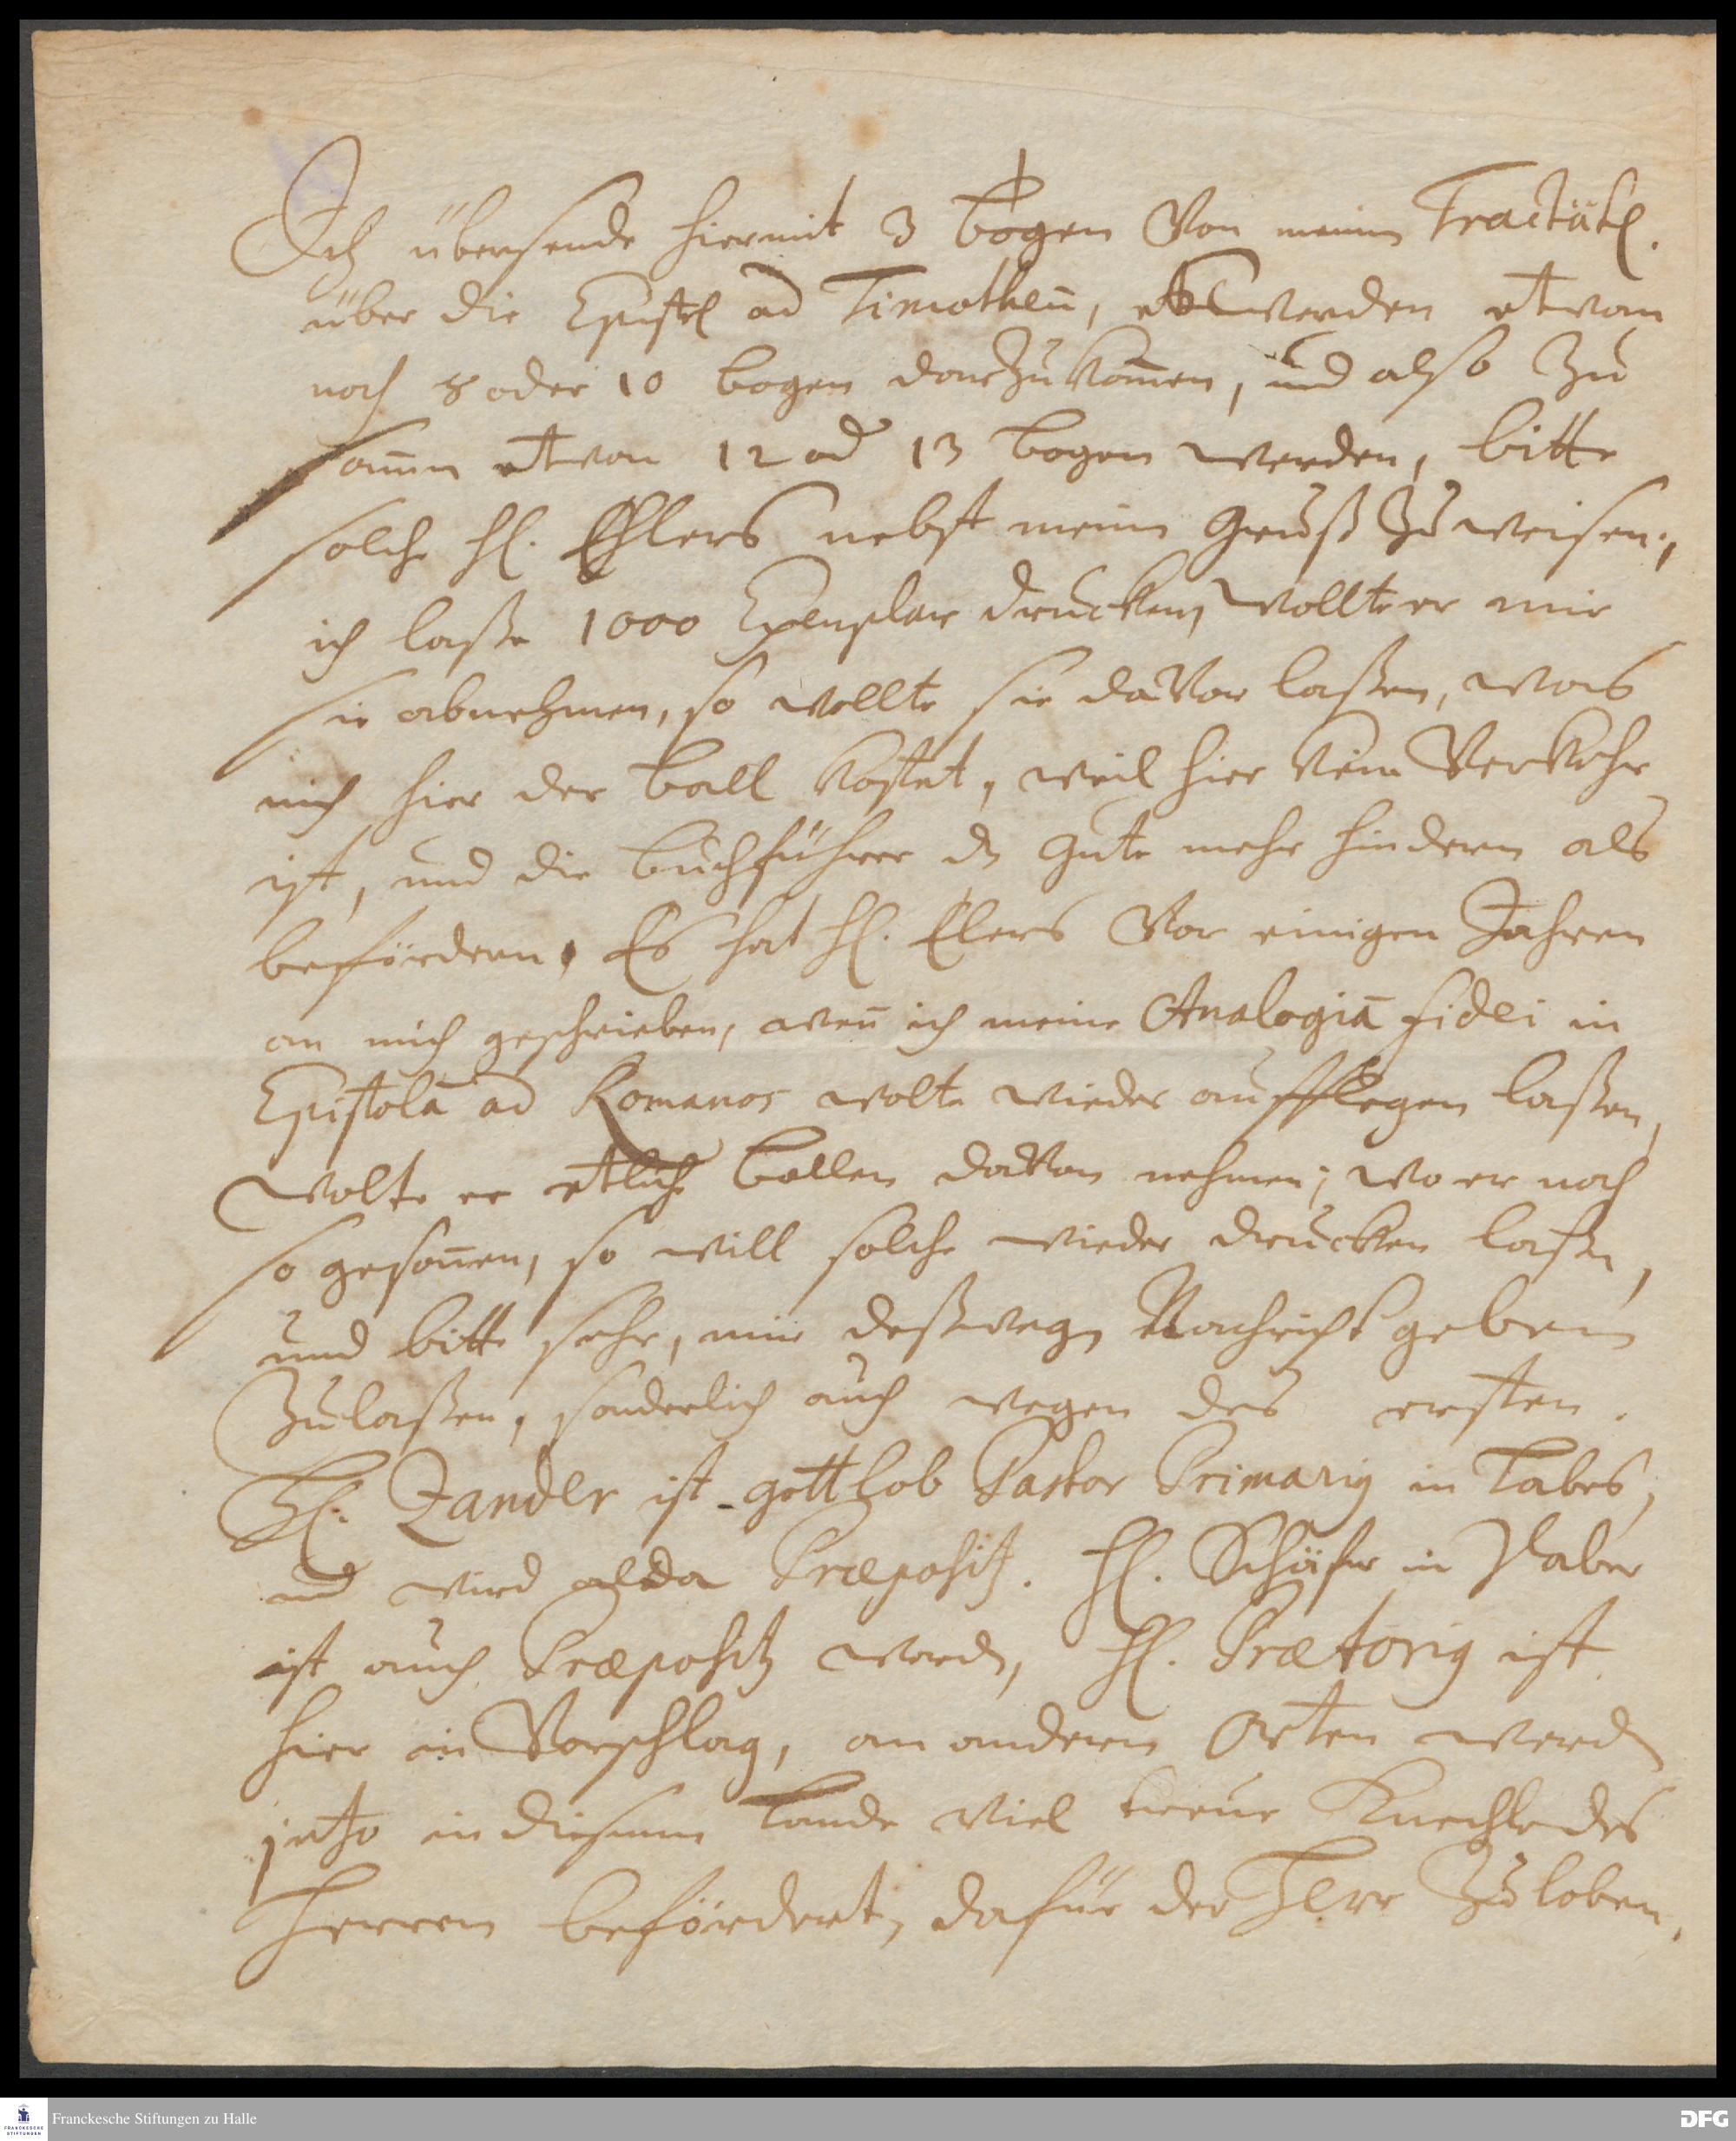 Ich übersende hiermit 3 bogen Von meinem Tractätl.
über die Epistel ad Timotheū, werden etwan
noch 8 oder 10 bogen darzu kom̅en, und also zu
sam̅en etwan 12 od 13 bogen werden, bitte
solche H. Ehlers nebst meinem Gruß zu weisen,
ich laße 1000 Exemplar drucken, wollte er mir
sie abnehmen, so wollte sie davor laßen, was
mich hier der ball kostet, weil hier kein Verkehr
ist, und die buchführer dz Gute mehr hindern als
befördern. Es hat H. Elers Vor einigen Jahren
an mich geschrieben, wen̅ ich meine Analogiā fidei in
Epistolā ad Romanos wolte wieder aufflegen laßen,
wolte er etliche ballen davon nehmen; wo er noch
so geson̅en, so will solche wieder drucken laßen,
und bitte sehr, mir deßwegen Nachricht geben
zulaßen, sonderlich auch wegen des ersten.
H. Zander ist gottlob Pastor Primarig in Labes,
und wird alda Præposit9. H. Schäfer in Daber
ist auch Præposit9 worden, H. Prætorig ist
hier in Vorschlag, an andern Orten werden
jetzo in diesem Lande viel treue Knechte des
Herren befördert, dafür der Herr zu loben.
Franckesche Stiftungen zu Halle
FRANCKESCHE STIFTUNGEN
DFG